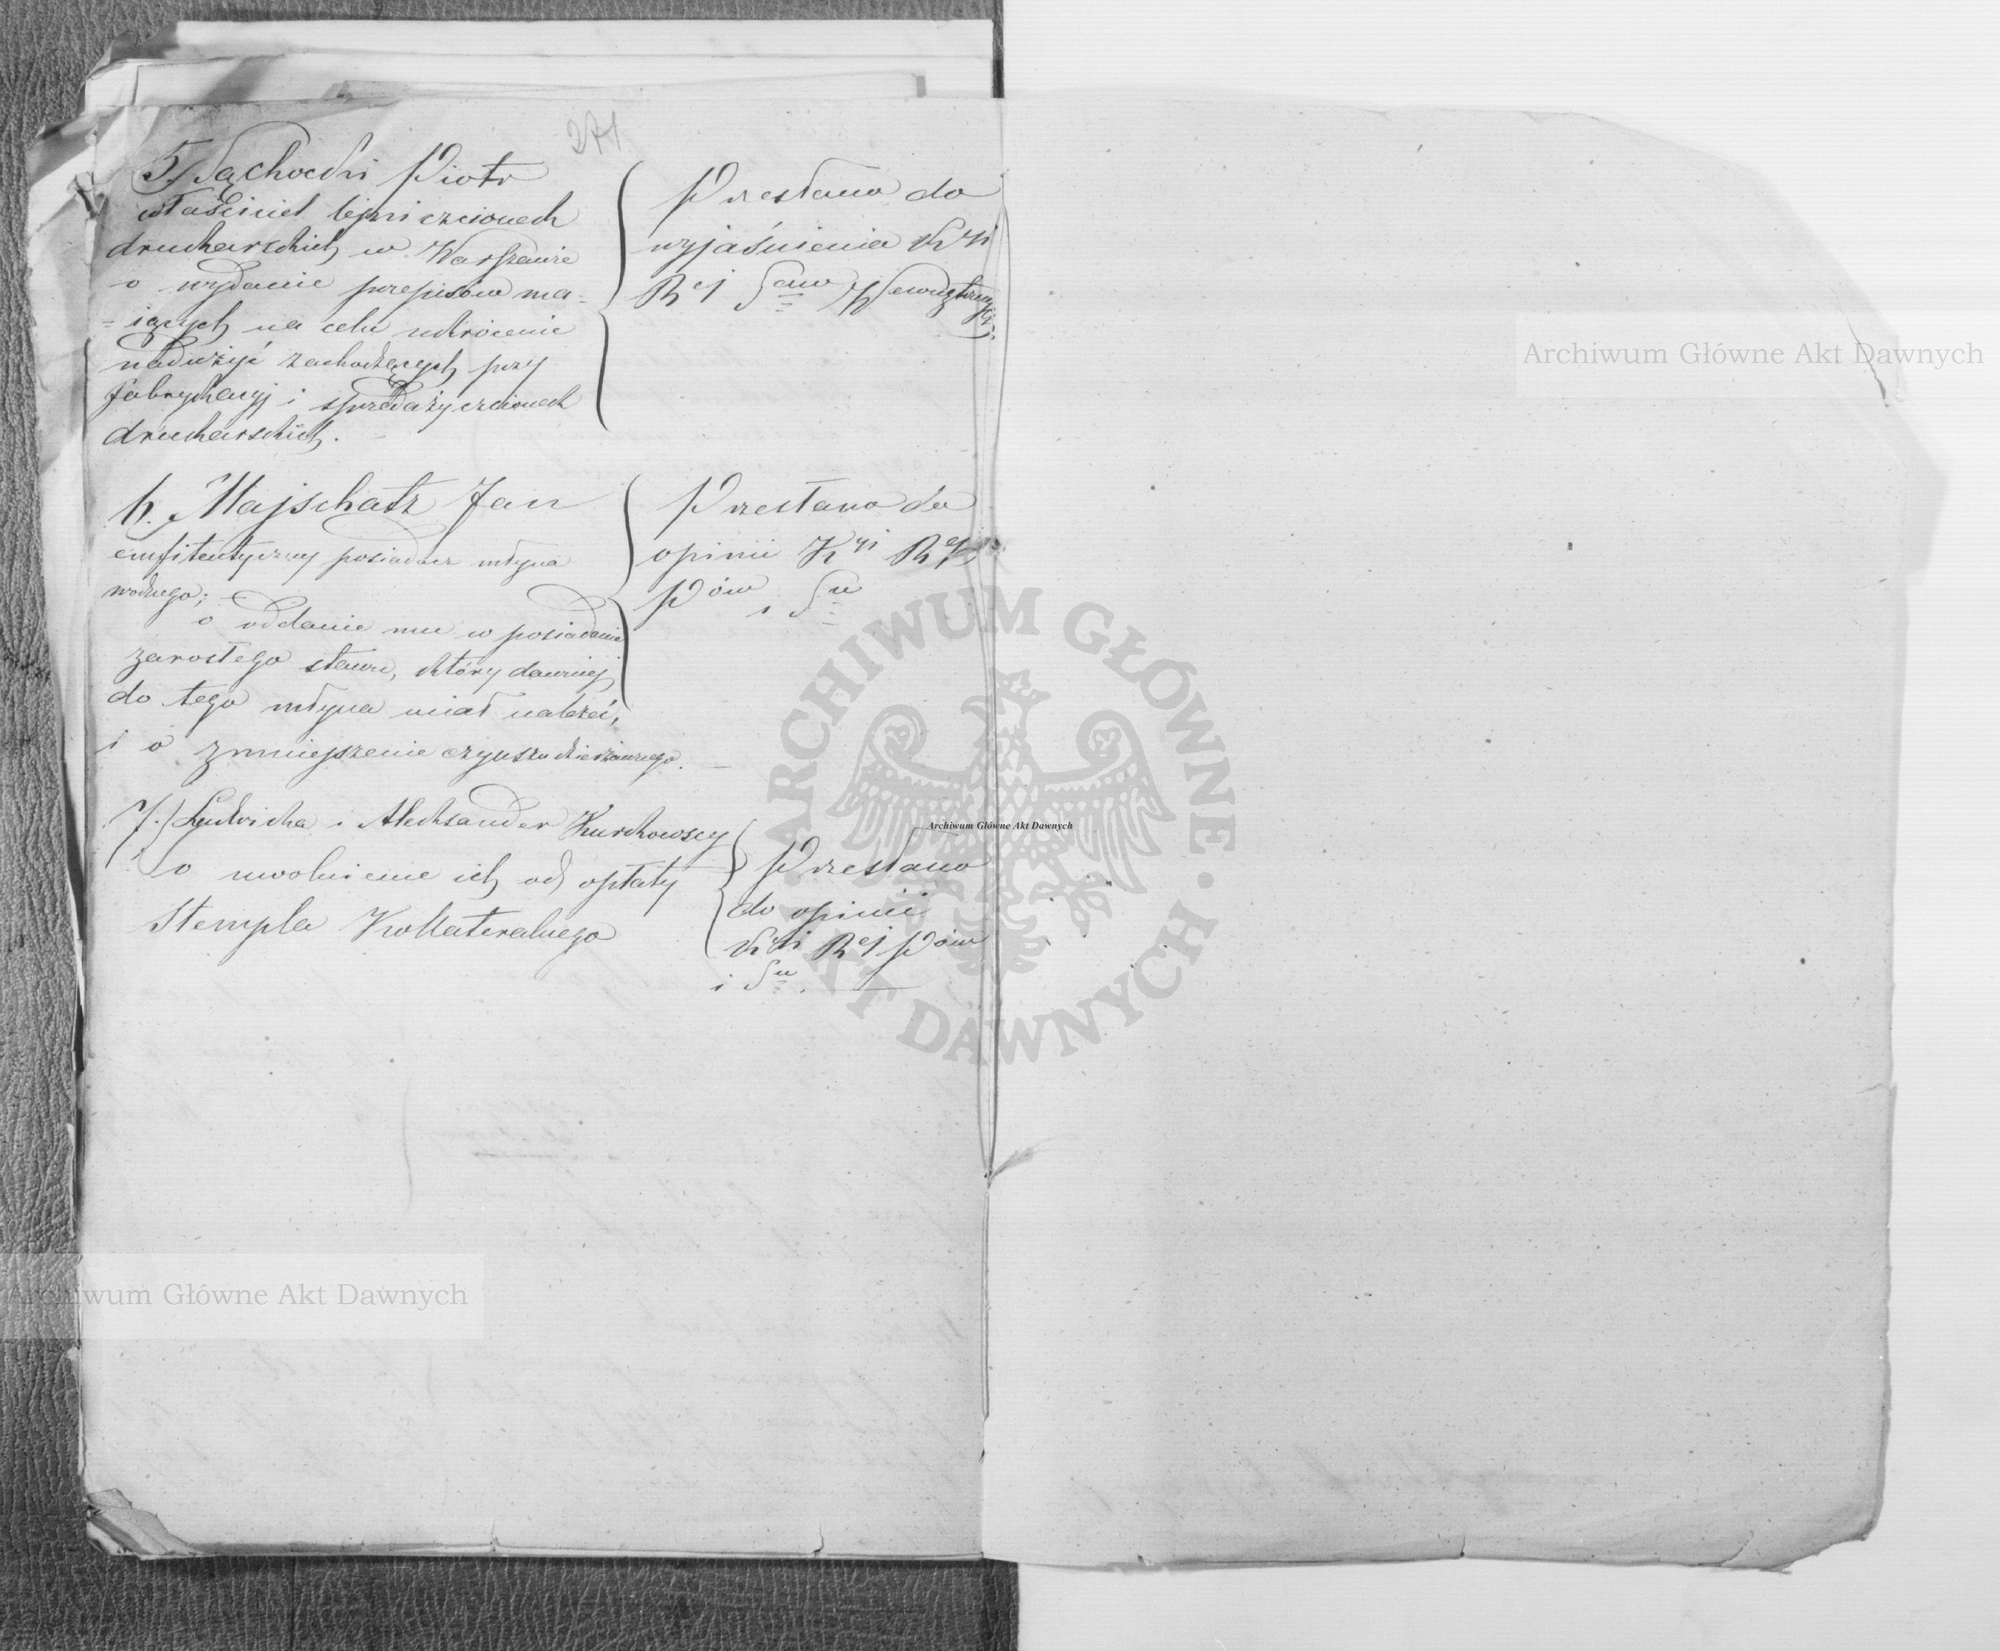 271
5. Sąchocki Piotr
właściciel lejni czcionech
drukarskich w Warszawie
o wydanie przepisów ma=
=iących na celu ukrócenie
nadużyć zachodzących przy
fabrykacyj i sprzedaży czcionech
drukarskich. –
Przesłano do
wyjaśnienia Kyi
Rej Sraw Wewnętrznych
6. Majschatz Jan
emfiteutyczny posiadacz młyna
wodnego; –
o oddanie mu w posiadanie
zarosłego stawu, który dawniej
do tego młyna miał należeć,
i o zmniejszenie czynszu dzierżawnego. –
Przesłano do
opinii Kyi Rej
Pów i Su
7.) Ludwika i Aleksander Kurkowscy
o uwolnienie ich od opłaty
Stempla Kollateralnego
Przesłano
do opinii
Kyi Rej Pów
i Su. –
Archiwum Główne Akt Dawnych
Archiwum Główne Akt Dawnych
Archiwum Główne Akt Dawnych
ARCHIWUM GŁÓWNE AKT DAWNYCH